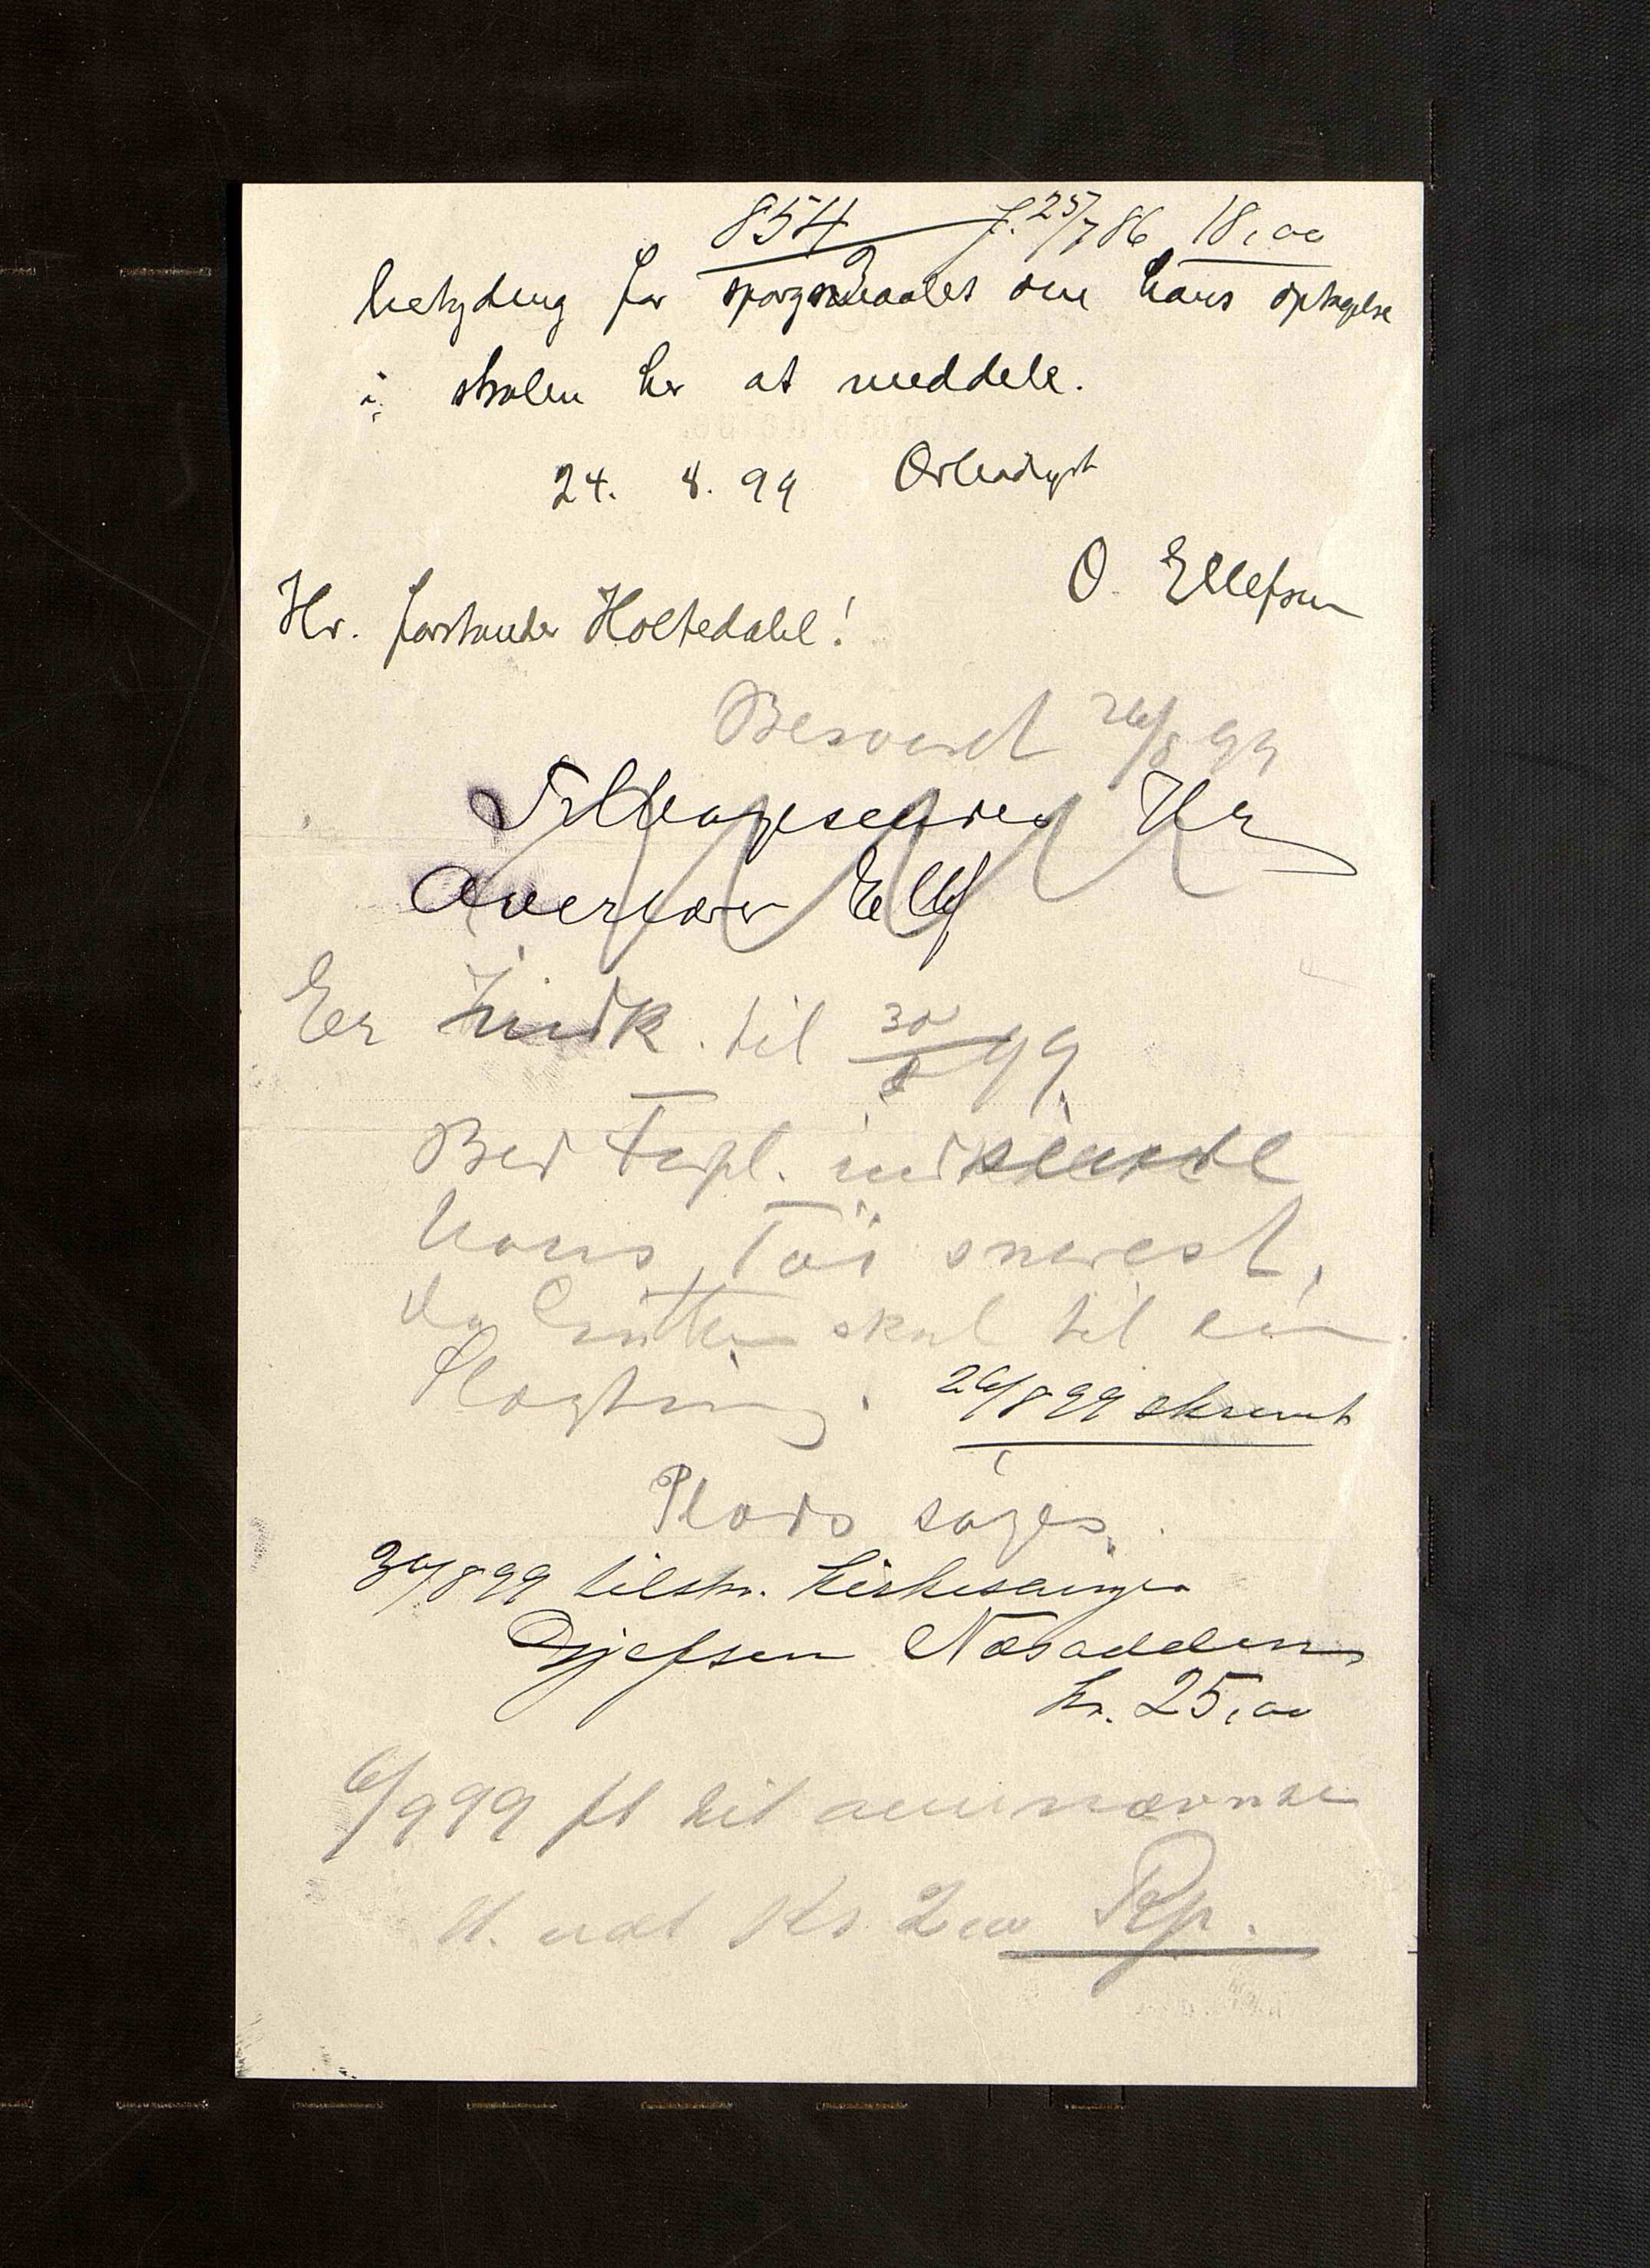 854 f. 25/7 86 18,00
betydning for spørgsmaalet om hans optagelse
i skolen her at meddele.
24. 8. 99 Ærbødigst
O. Ellefsen
Hr. forstander Holtedahl!
Besvaret 26/8 99
Tilbagesendes Hr
Overlærer Ellef
Er indk. til 30/8 99
Bed Forpl. indsende
hans Tøi snarest,
da Gutten skal til en
Plads søges.
26/8 99 skrevet
30/8 99 tilskr. kirkesanger
Gjefsen Næsodden
kr. 25,00
6/9 99 ft hit
H. udt Kr 2